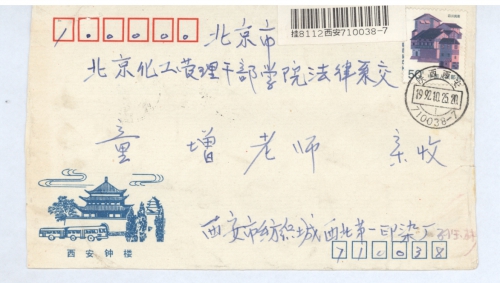 1 0 0 0 0 0 北京市
挂8112西安710038-7
50
北京化工管理干部学院法律系交
1992.10.25.20
710038-7
童增老师 亲收
西安钟楼
西安市纺织城西北第一印染厂
710038